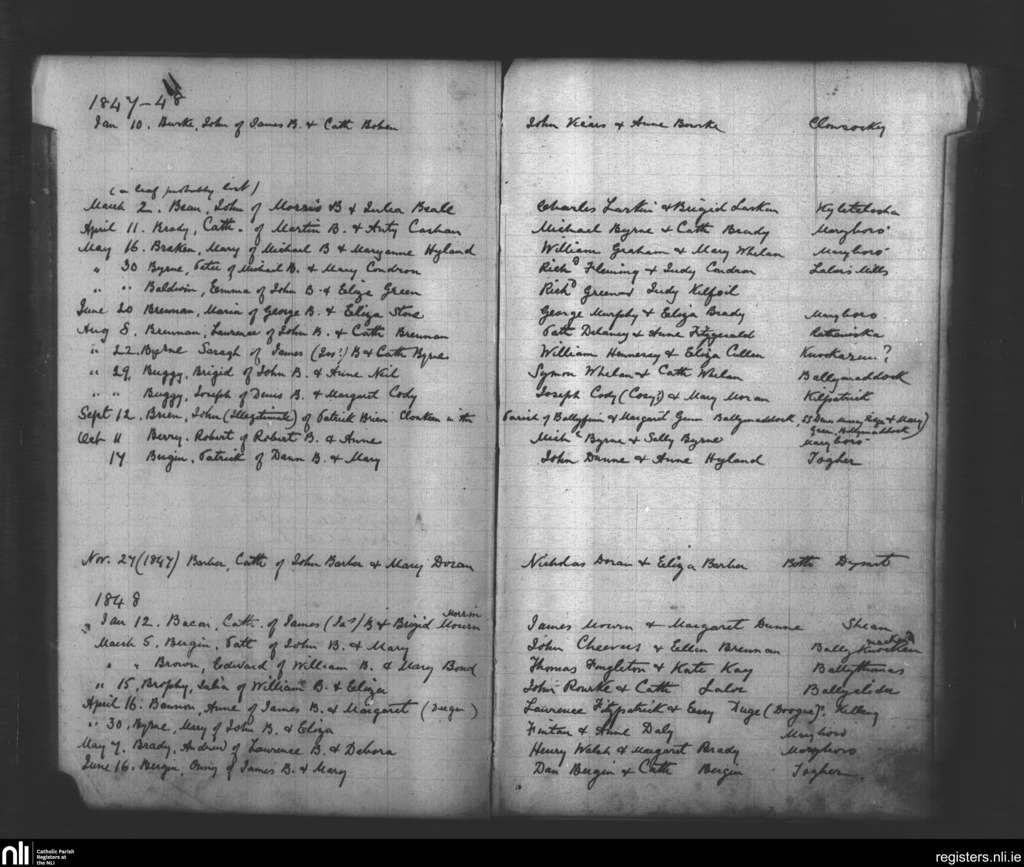 1847-48
Jan 10. Burke, John of James B. & Cath Bohen John Vicars & Anne Bourke Clonsocky
(a leaf probably lost)
March 2. Bean, John of Morris B & Julia Beale Charles Larkin & Brigid Larkin Kyletelosha
April 11. Brady, Cath. of Martin B. & Arty Cashan Michael Byrne & Cath Brady Maryboro'
May 16. Breken, Mary of Michael B & Maryanne Hyland William Graham & Mary Whelan Maryboro'
" 30 Byrne, Peter of Michael B. & Mary Condron Richd Fleming & Judy Condron Lalors Mills
" " Baldwin, Emma of John B. & Eliza Green Richd Greene & Judy Kilfoil
June 20 Brennan, Maria of George B. & Eliza Stone George Murphy & Eliza Brady Maryboro.
Aug 8. Brennan, Laurence of John B. & Cath Brennan Path Delaney & Anne Fitzgerald Ratheniska
" 22. Byrne Saragh of James (Jas?) B & Cath Byrne William Hennesey & Eliza Cullen
" 29. Buggy, Brigid of John B. & Anne Neil Symon Whelan & Cath Whelan Ballymaddock
" " Buggy, Joseph of Denis B. & Margaret Cody Joseph Cody (Cosy?) & Mary Moran Kilpatrick
Sept 12. Brien, John (Illegitimate) of Patrick Brien Cloneen in the Parish of Ballyfin & Margaret Gunn Ballymaddock,
Green, Ballymaddock)
Oct 11 Berry. Robert of Robert B. & Anne Michl Byrne & Sally Byrne Maryboro'
17 Bergin, Patrick of Dann B. & Mary John Dunne & Anne Hyland Togher
Nov. 27 (1847) Barber, Cath of John Barber & Mary Doran Nicholas Doran & Eliza Barber Both Dysart
1848
" Jan 12. Bacon, Cath. of James (Jas) B & Brigid Mourn James Mourn & Margaret Dunne Shean
Morrin
March 5. Bergin, Path of John B. & Mary John Cheevers & Ellen Brennan Bally
" " Brown, Edward of William B. & Mary Bond Thomas Hugleton & Kate Kay Ballythomas
" 15, Brophy, Julia of William B. & Eliza John Rourke & Cath Lalor Ballyclider
April 16. Bannon, Anne of James B. & Margaret Laurence Fitzpatrick &
" 30. Byrne, Mary of John B. & Eliza Fintan & Anne Daly Maryboro
May 7. Brady, Andrew of Laurence B. & Debora Henry Walsh & Margaret Brady Maryboro
June 16. Bergin, Onny of James B. & Mary Dan Bergin & Cath Bergin Togher.
nli Catholic Parish
Registers at
the NLI
registers.nli.ie